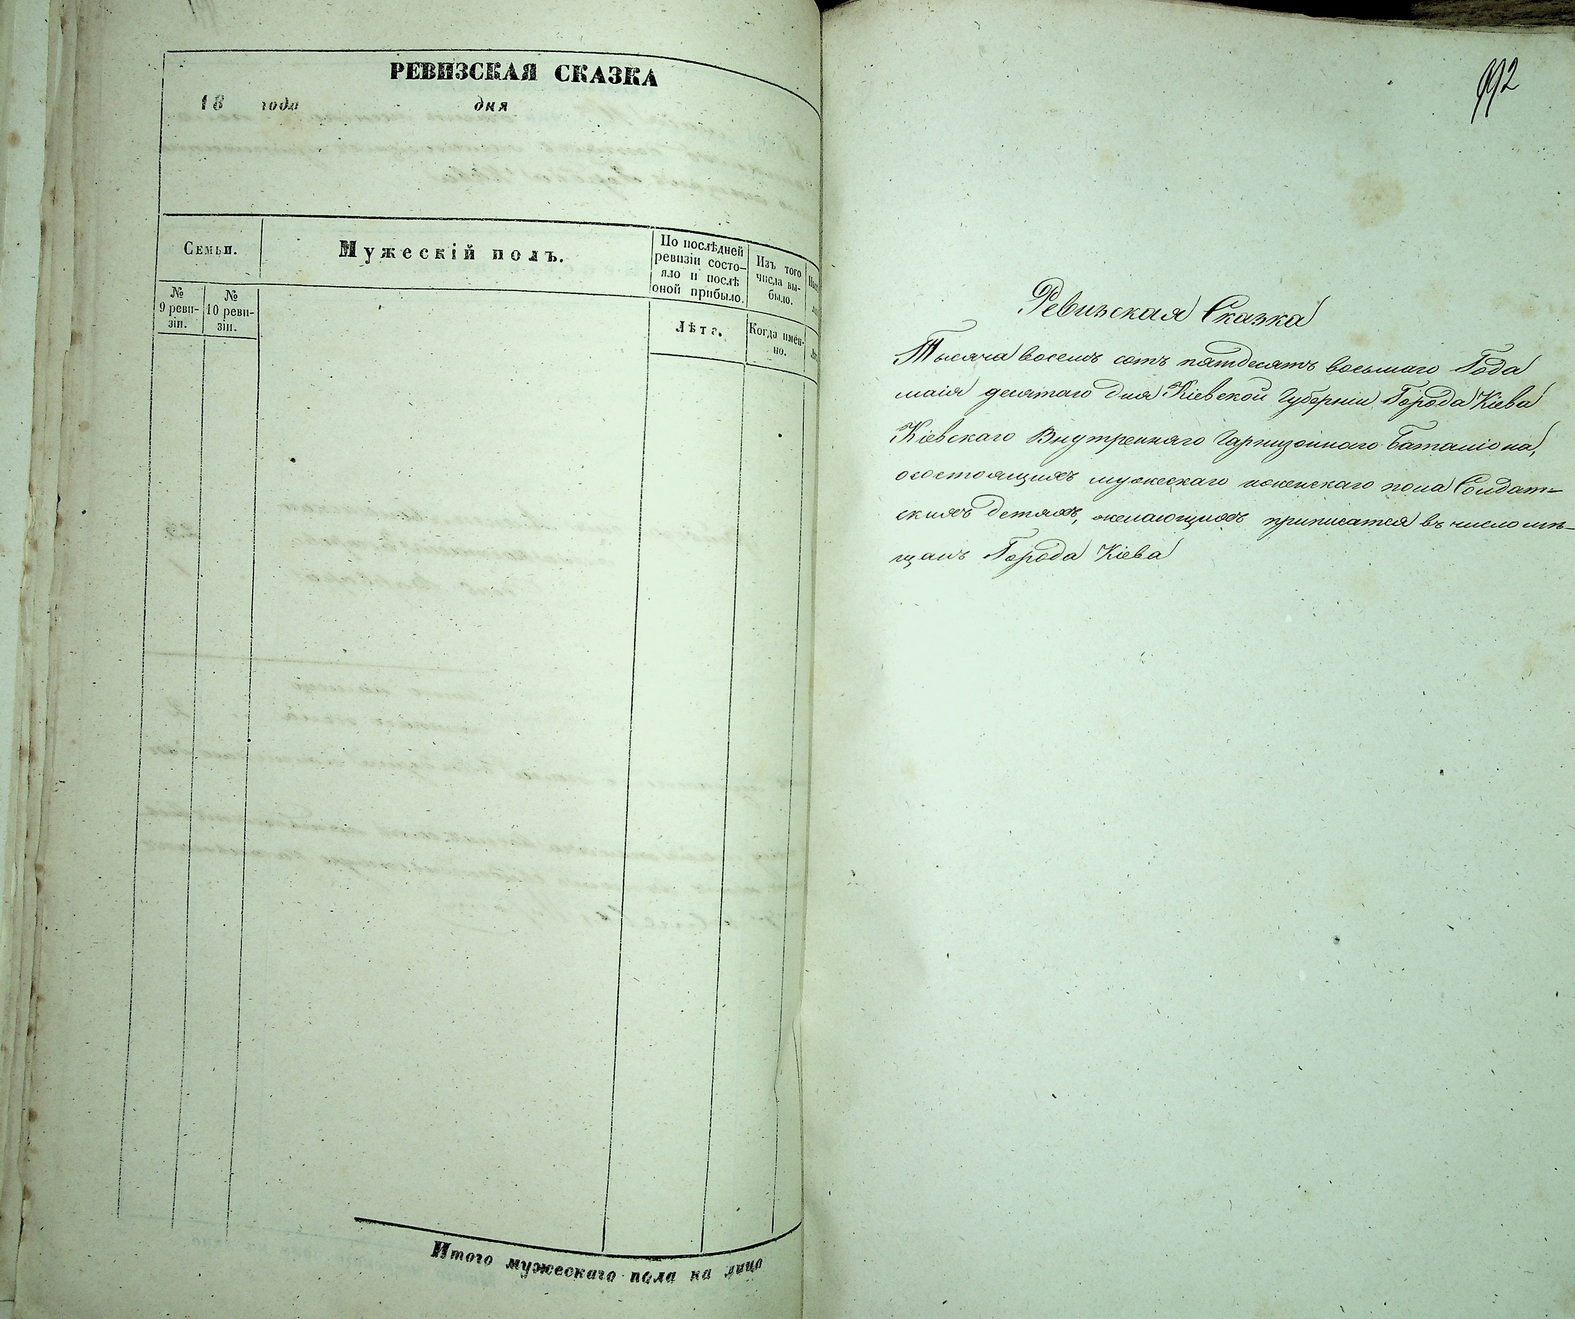 РЕВИЗСКАЯ СКАЗКА
18 года дня
Семьи.
Мужескій полъ.
По послѣдней ревизіи состо-
яло и послѣ
оной прибыло.
Изъ того
числа вы-
было.
№
9 реви-
зіи.
№
10 реви-
зіи.
Лѣта.
Когда имен-
но.
Итого мужескаго пола на лицо
992
Ревизская Сказка
Тысяча восемь сотъ пятдесятъ восьмаго Года
маія десятаго дня Кіевской Губерніи Города Кіева
Кіевскаго Внутренняго Гарнизоннаго Баталіона,
осостоящихъ мужескаго иженскаго пола Солдат=
скихъ детяхъ, желающихъ приписатся въ число мѣ-
щанъ Города Кіева